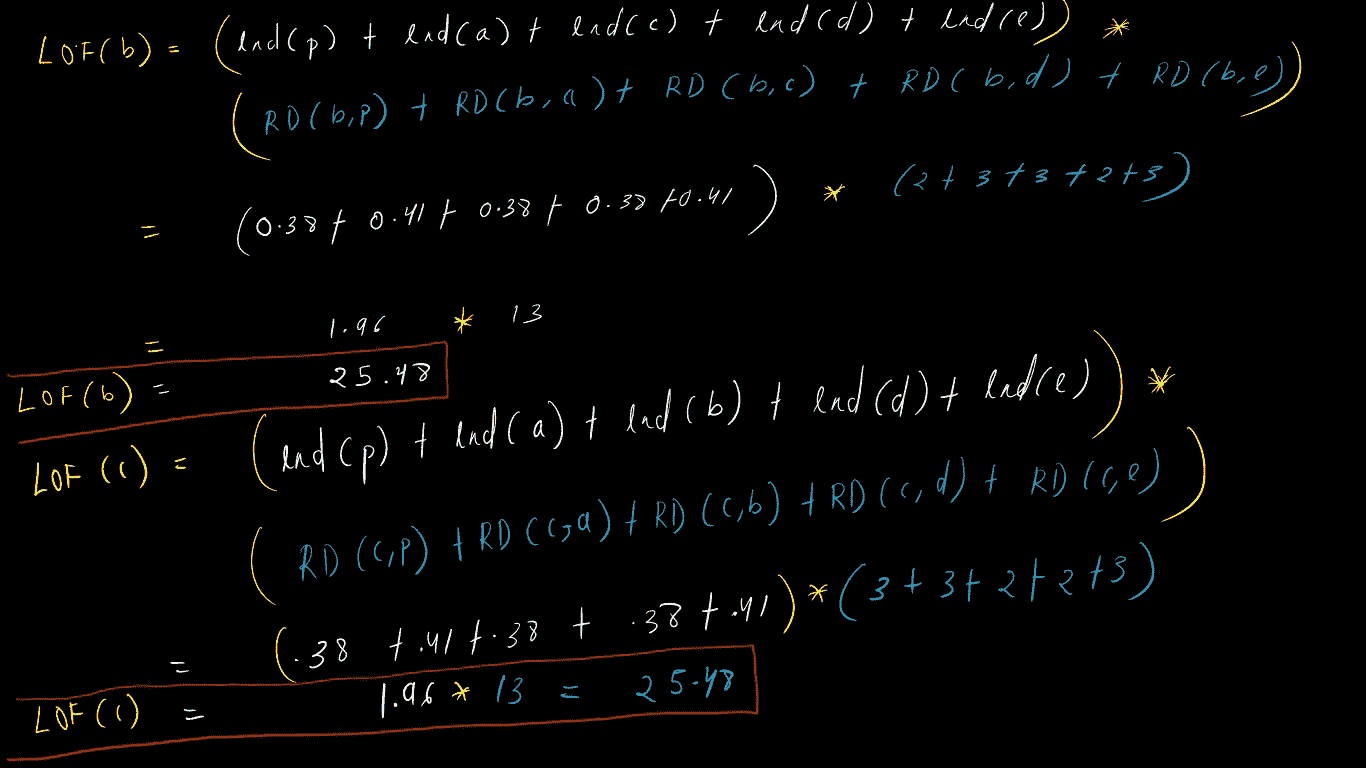 LOF(b) = (lrd(p) + lrd(a) + lrd(c) + lrd(d) + lrd(e)) *
(RD(b,p) + RD(b,a) + RD(b,c) + RD(b,d) + RD(b,e))
= (0.38 + 0.41 + 0.38 + 0.38 + 0.41) * (2 + 3 + 3 + 2 + 3)
= 1.96 * 13
LOF(b) = 25.48
LOF(c) = (lrd(p) + lrd(a) + lrd(b) + lrd(d) + lrd(e)) *
(RD(c,p) + RD(c,a) + RD(c,b) + RD(c,d) + RD(c,e))
= (.38 + .41 + .38 + .38 + .41) * (3 + 3 + 2 + 2 + 3)
LOF(c) = 1.96 * 13 = 25.48